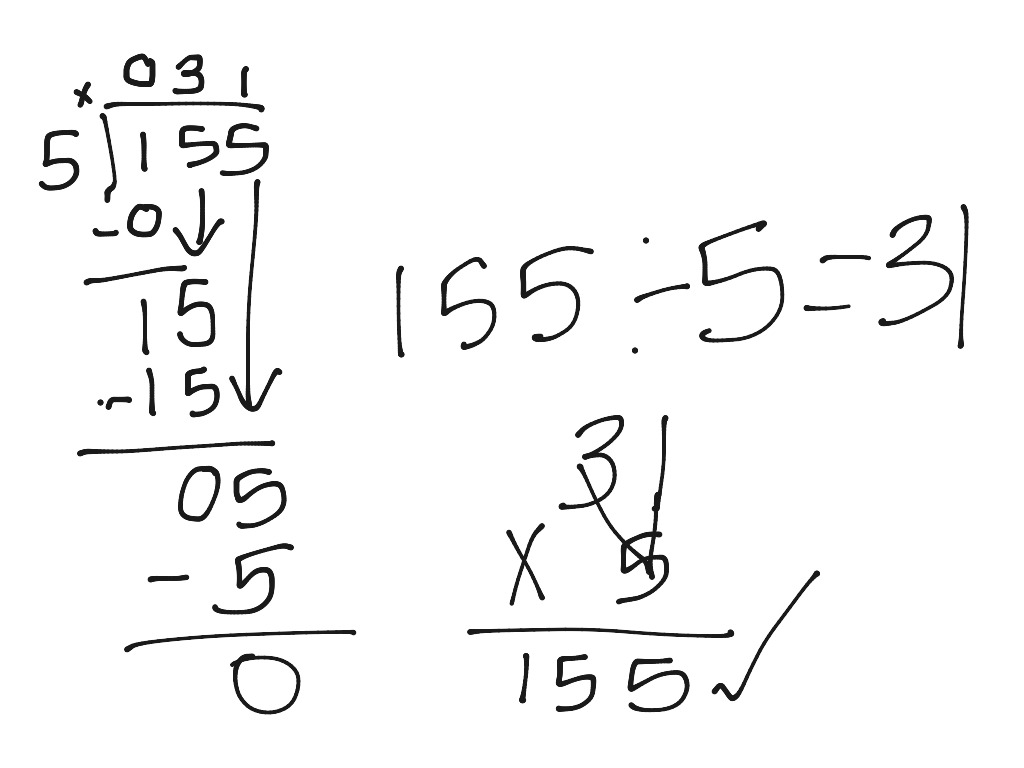 031
×
5)155
-0
15
-15
05
-5
0
155÷5=31
31
×5
155✓